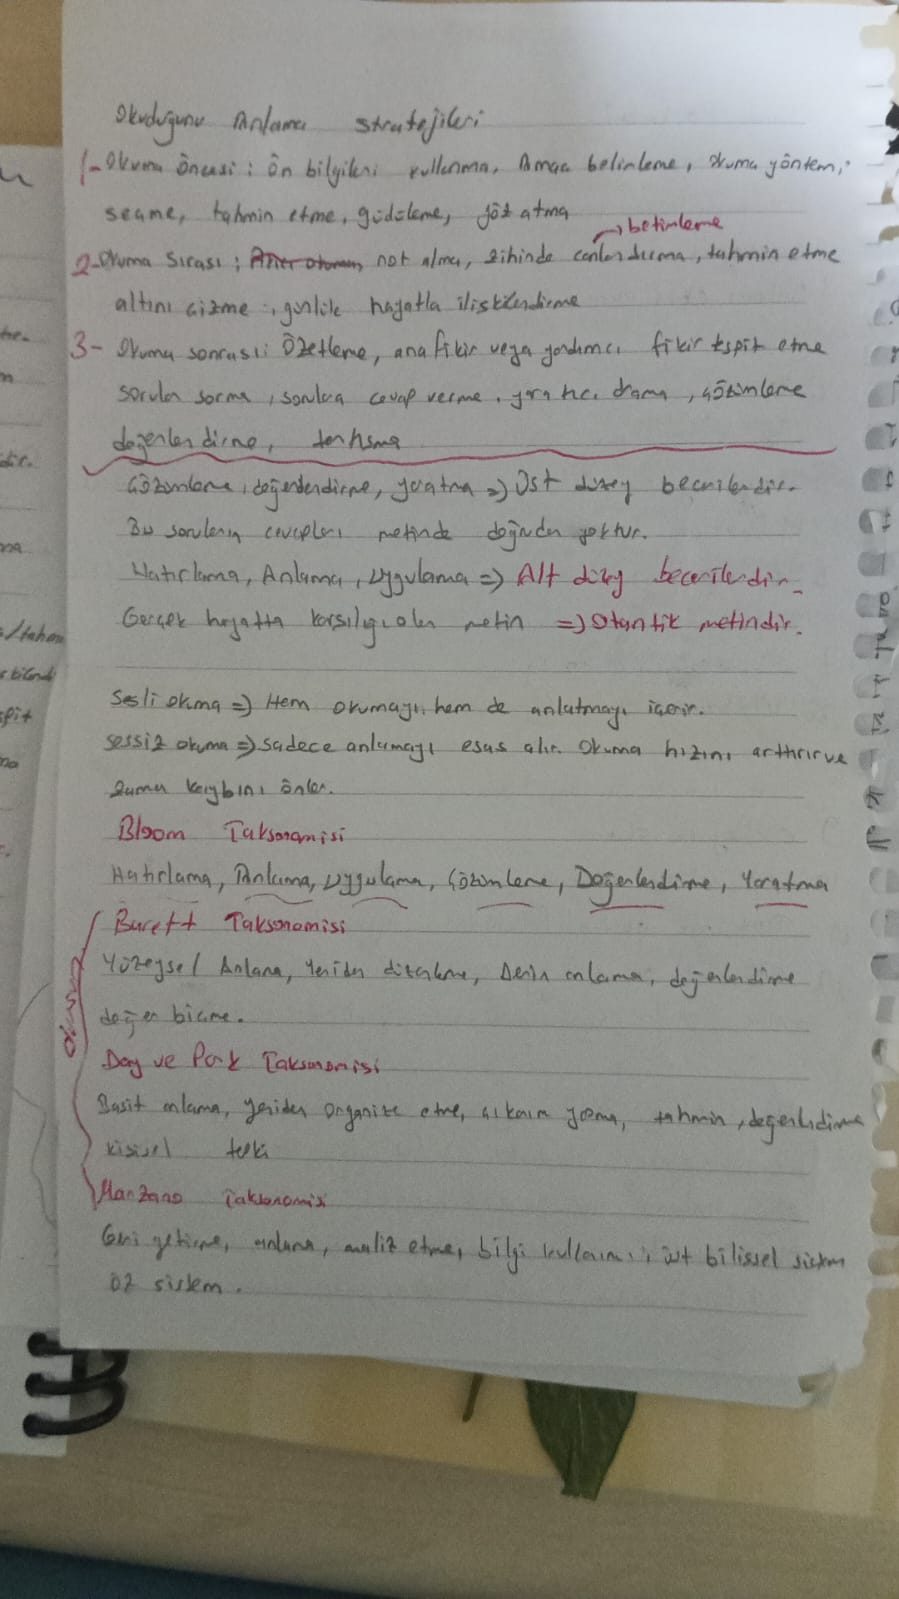 Okuduğunu Anlama Stratejileri
1- Okuma Öncesi : Ön bilgileri kullanma, Amaç belirleme, okuma yöntemi
seçme, tahmin etme, güdüleme, göz atma
→ betimleme
2- Okuma Sırası : not alma, zihinde canlandırma, tahmin etme
altını çizme, günlük hayatla ilişkilendirme
3- Okuma sonrası: Özetleme, ana fikir veya yardımcı fikir tespit etme
sorular sorma, sorulara cevap verme, yaratıcı drama, çözümleme
değerlendirme, tartışma
Çözümleme, değerlendirme, yaratma => Üst düzey becerilerdir.
Bu soruların cevapları metinde doğrudan yoktur.
Hatırlama, Anlama, Uygulama => Alt düzey becerilerdir.
Gerçek hayatta karşılığı olan metin => Otantik metindir.
Sesli okuma => Hem okumayı hem de anlatmayı içerir.
Sessiz okuma => sadece anlamayı esas alır. Okuma hızını arttırır ve
zaman kaybını önler.
Bloom Taksonomisi
Hatırlama, Anlama, Uygulama, Çözümleme, Değerlendirme, Yaratma
Barett Taksonomisi
Yüzeysel Anlama, Yeniden düzenleme, Derin anlama, değerlendirme
değer biçme.
okuma
Day ve Park Taksonomisi
Basit anlama, yeniden organize etme, çıkarım yapma, tahmin, değerlendirme
kişisel tepki
Marzano Taksonomisi
Geri getirme, anlama, analiz etme, bilgi kullanımı, üst bilişsel sistem
öz sistem.